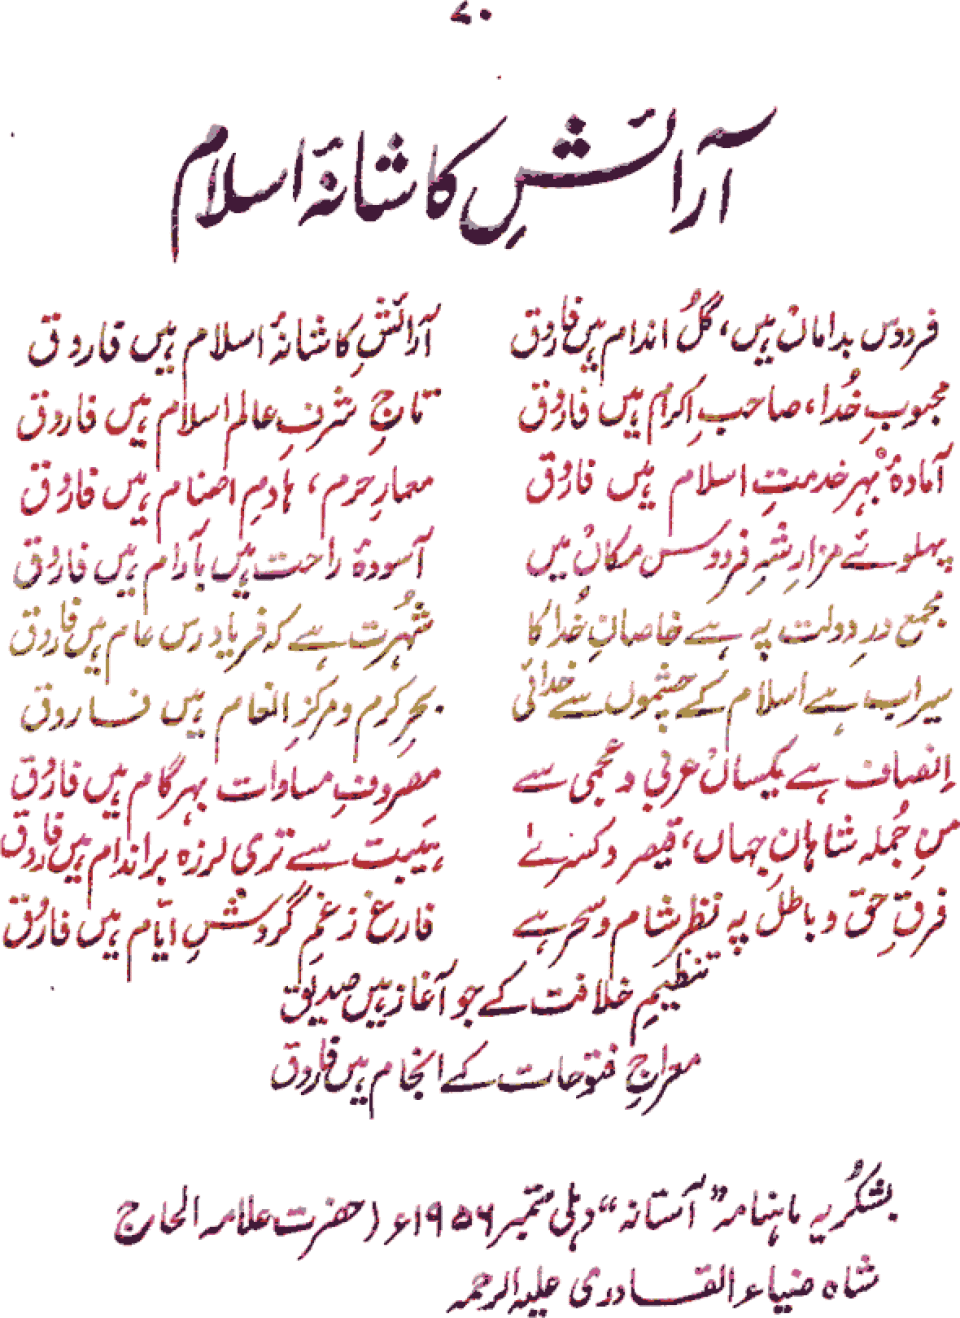 ۷۰
آرائشِ کاشانۂ اسلام
فردوس بداماں ہیں، گلُ اندام ہیں فاروق آرائشِ کاشانۂ اسلام ہیں فاروق
محبوبِ خُدا، صاحبِ اِکرام ہیں فاروق تاجِ شرفِ عالم اسلام ہیں فاروق
آمادۂ بہرِ خدمتِ اسلام ہیں فاروق معمارِ حرم، ہادمِ اصنام ہیں فاروق
پہلوئے مزارِ شہِ فردوس مکاں میں آسودۂ راحت ہیں بآرام ہیں فاروق
مجمع درِ دولت پہ ہے خاصانِ خُدا کا شُہرت ہے کہ فریاد رس عام ہیں فاروق
سیراب ہے اسلام کے چشموں سے خدائی بحرِ کرم و مرکزِ انعام ہیں فاروق
اِنصاف ہے یکساں عربی و عجمی سے مصروفِ مساوات بہرگام ہیں فاروق
مِن جُملہ شاہانِ جہاں، قیصر و کسریٰ ہیبت سے تری لرزہ براندام ہیں فاروق
فرقِ حق و باطل پہ نظر شام و سحر ہے فارغ زغمِ گردشِ ایّام ہیں فاروق
تنظیمِ خلافت کے جو آغاز ہیں صدیق
معراجِ فتوحات کے انجام ہیں فاروق
بشکُریہ ماہنامہ ”آستانہ“ دہلی ستمبر ۱۹۵۶ء (حضرت علامہ الحاج
شاہ ضیاء القادری علیہ الرحمہ